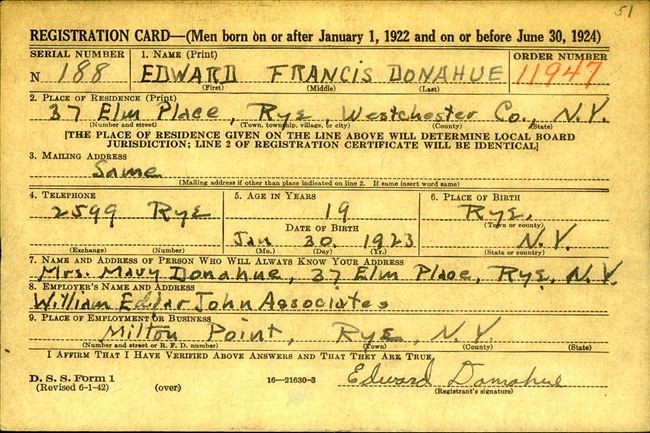 51
REGISTRATION CARD—(Men born on or after January 1, 1922 and on or before June 30, 1924)
SERIAL NUMBER 1. NAME (Print) ORDER NUMBER
N 188 EDWARD FRANCIS DONAHUE 11947
(First) (Middle) (Last)
2. PLACE OF RESIDENCE (Print)
37 Elm Place, Rye, Westchester Co., N.Y.
(Number and street) (Town, township, village, or city) (County) (State)
[THE PLACE OF RESIDENCE GIVEN ON THE LINE ABOVE WILL DETERMINE LOCAL BOARD
JURISDICTION; LINE 2 OF REGISTRATION CERTIFICATE WILL BE IDENTICAL]
3. MAILING ADDRESS
Same
(Mailing address if other than place indicated on line 2. If same insert word same)
4. TELEPHONE 5. AGE IN YEARS 6. PLACE OF BIRTH
2599 Rye 19 Rye,
DATE OF BIRTH (Town or county)
Jan 30 1923 N.Y.
(Exchange) (Number) (Mo.) (Day) (Yr.) (State or country)
7. NAME AND ADDRESS OF PERSON WHO WILL ALWAYS KNOW YOUR ADDRESS
Mrs. Mary Donahue, 37 Elm Place, Rye, N.Y.
8. EMPLOYER'S NAME AND ADDRESS
William Edgar John Associates
9. PLACE OF EMPLOYMENT OR BUSINESS
Milton Point, Rye, N.Y.
(Number and street or R. F. D. number) (Town) (County) (State)
I AFFIRM THAT I HAVE VERIFIED ABOVE ANSWERS AND THAT THEY ARE TRUE.
D. S. S. Form 1 Edward Donahue
(Revised 6-1-42) (over) 16—21630-3 (Registrant's signature)